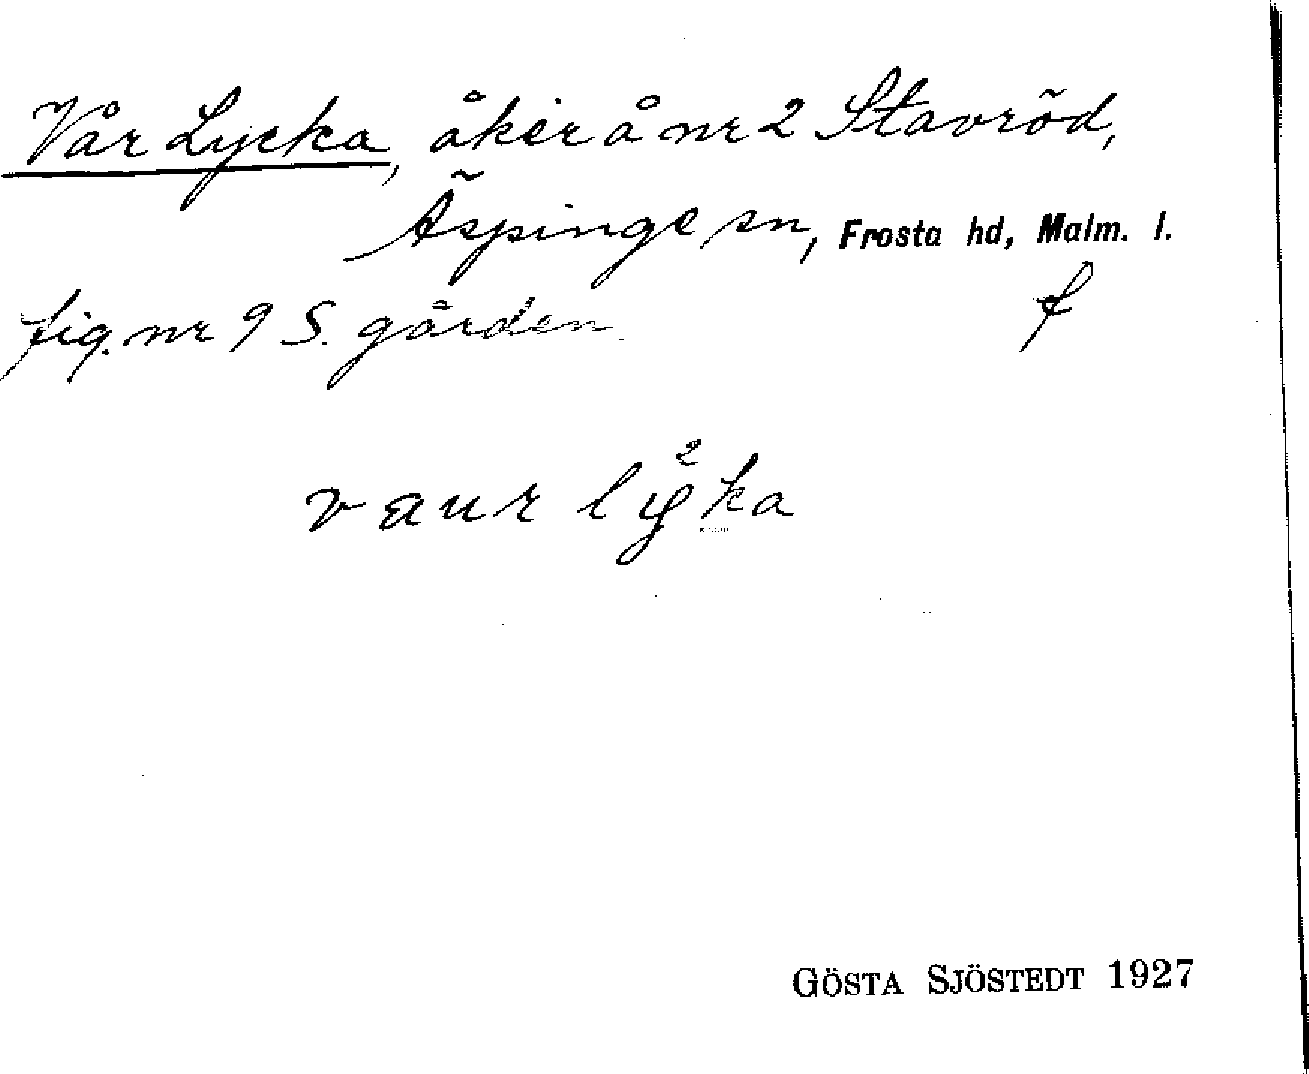 Vår Lycka, åker å nr 2 Stavröd,
Äspinge sn, Frosta hd, Malm. l.
fig. nr 9 S. gården f
vaur lyka
GÖSTA SJÖSTEDT 1927